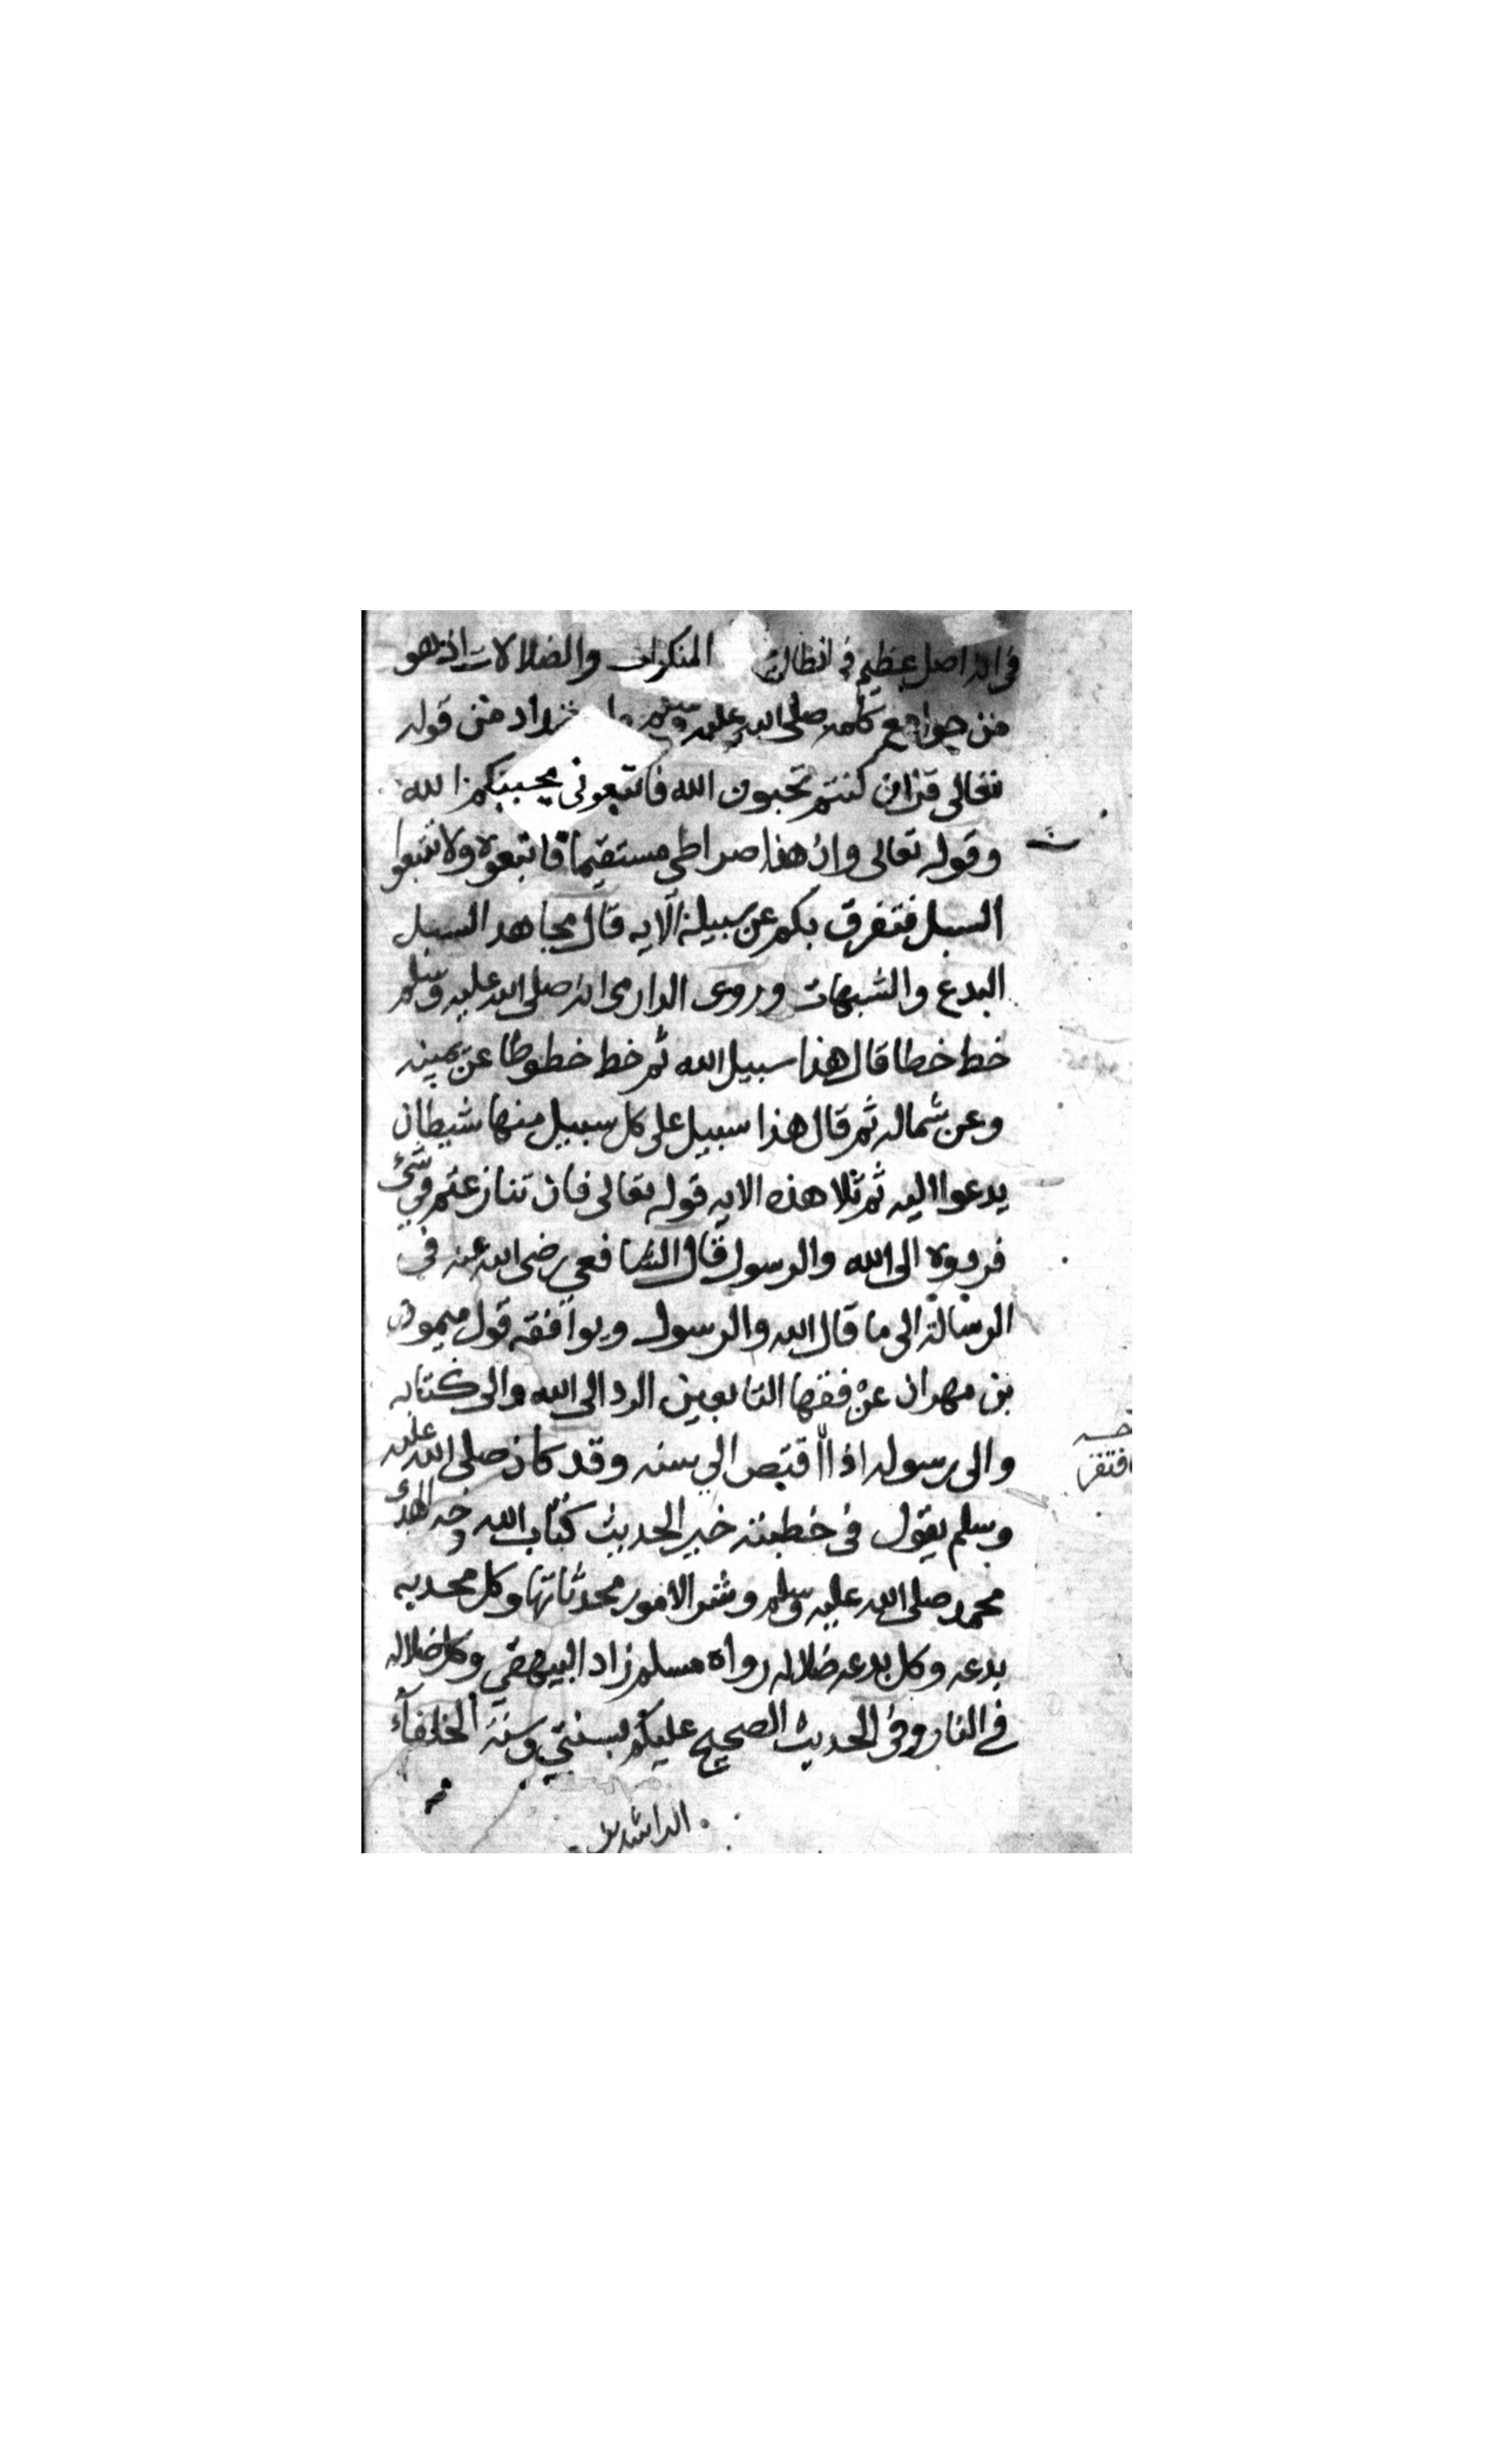 في انه اصل عظيم في ابطال المنكرات والضلالات اذ هو
من جوامع كلمه صلى الله عليه وسلم من قوله
تعالى قل ان كنتم تحبون الله فاتبعونى يحببكم الله
وقوله تعالى وان هذا صراطى مستقيما فاتبعوه ولا تتبعوا
السبل فتفرق بكم عن سبيله الايه قال مجاهد السبل
البدع والشبهات وروى الدارمى انه صلى الله عليه وسلم
خط خطا قال هذا سبيل الله ثم خط خطوطا عن يمينه
وعن شماله ثم قال هذا سبيل على كل سبيل منها شيطان
يدعوا اليه ثم تلا هذه الايه قوله تعالى فان تنازعتم في شئ
فردوه الى الله والرسول قال الشافعي رضى الله عنه فى
الرسالة الى ما قال الله والرسول ويوافقه قول ميمون
بن مهران عن فقها التابعين الرد الى الله والى كتابه
والى رسوله اذا الي سنه وقد كان صلى الله عليه
وسلم يقول فى خطبته خير الحديث كتاب الله وخير الهدى
محمد صلى الله عليه وسلم وشر الامور محدثاتها وكل محدثه
بدعه وكل بدعه ضلاله رواه مسلم زاد البيهقي وكل ضلاله
في النار وفى الحديث الصحيح عليكم بسنتي وسنة الخلفآء
الراشدين